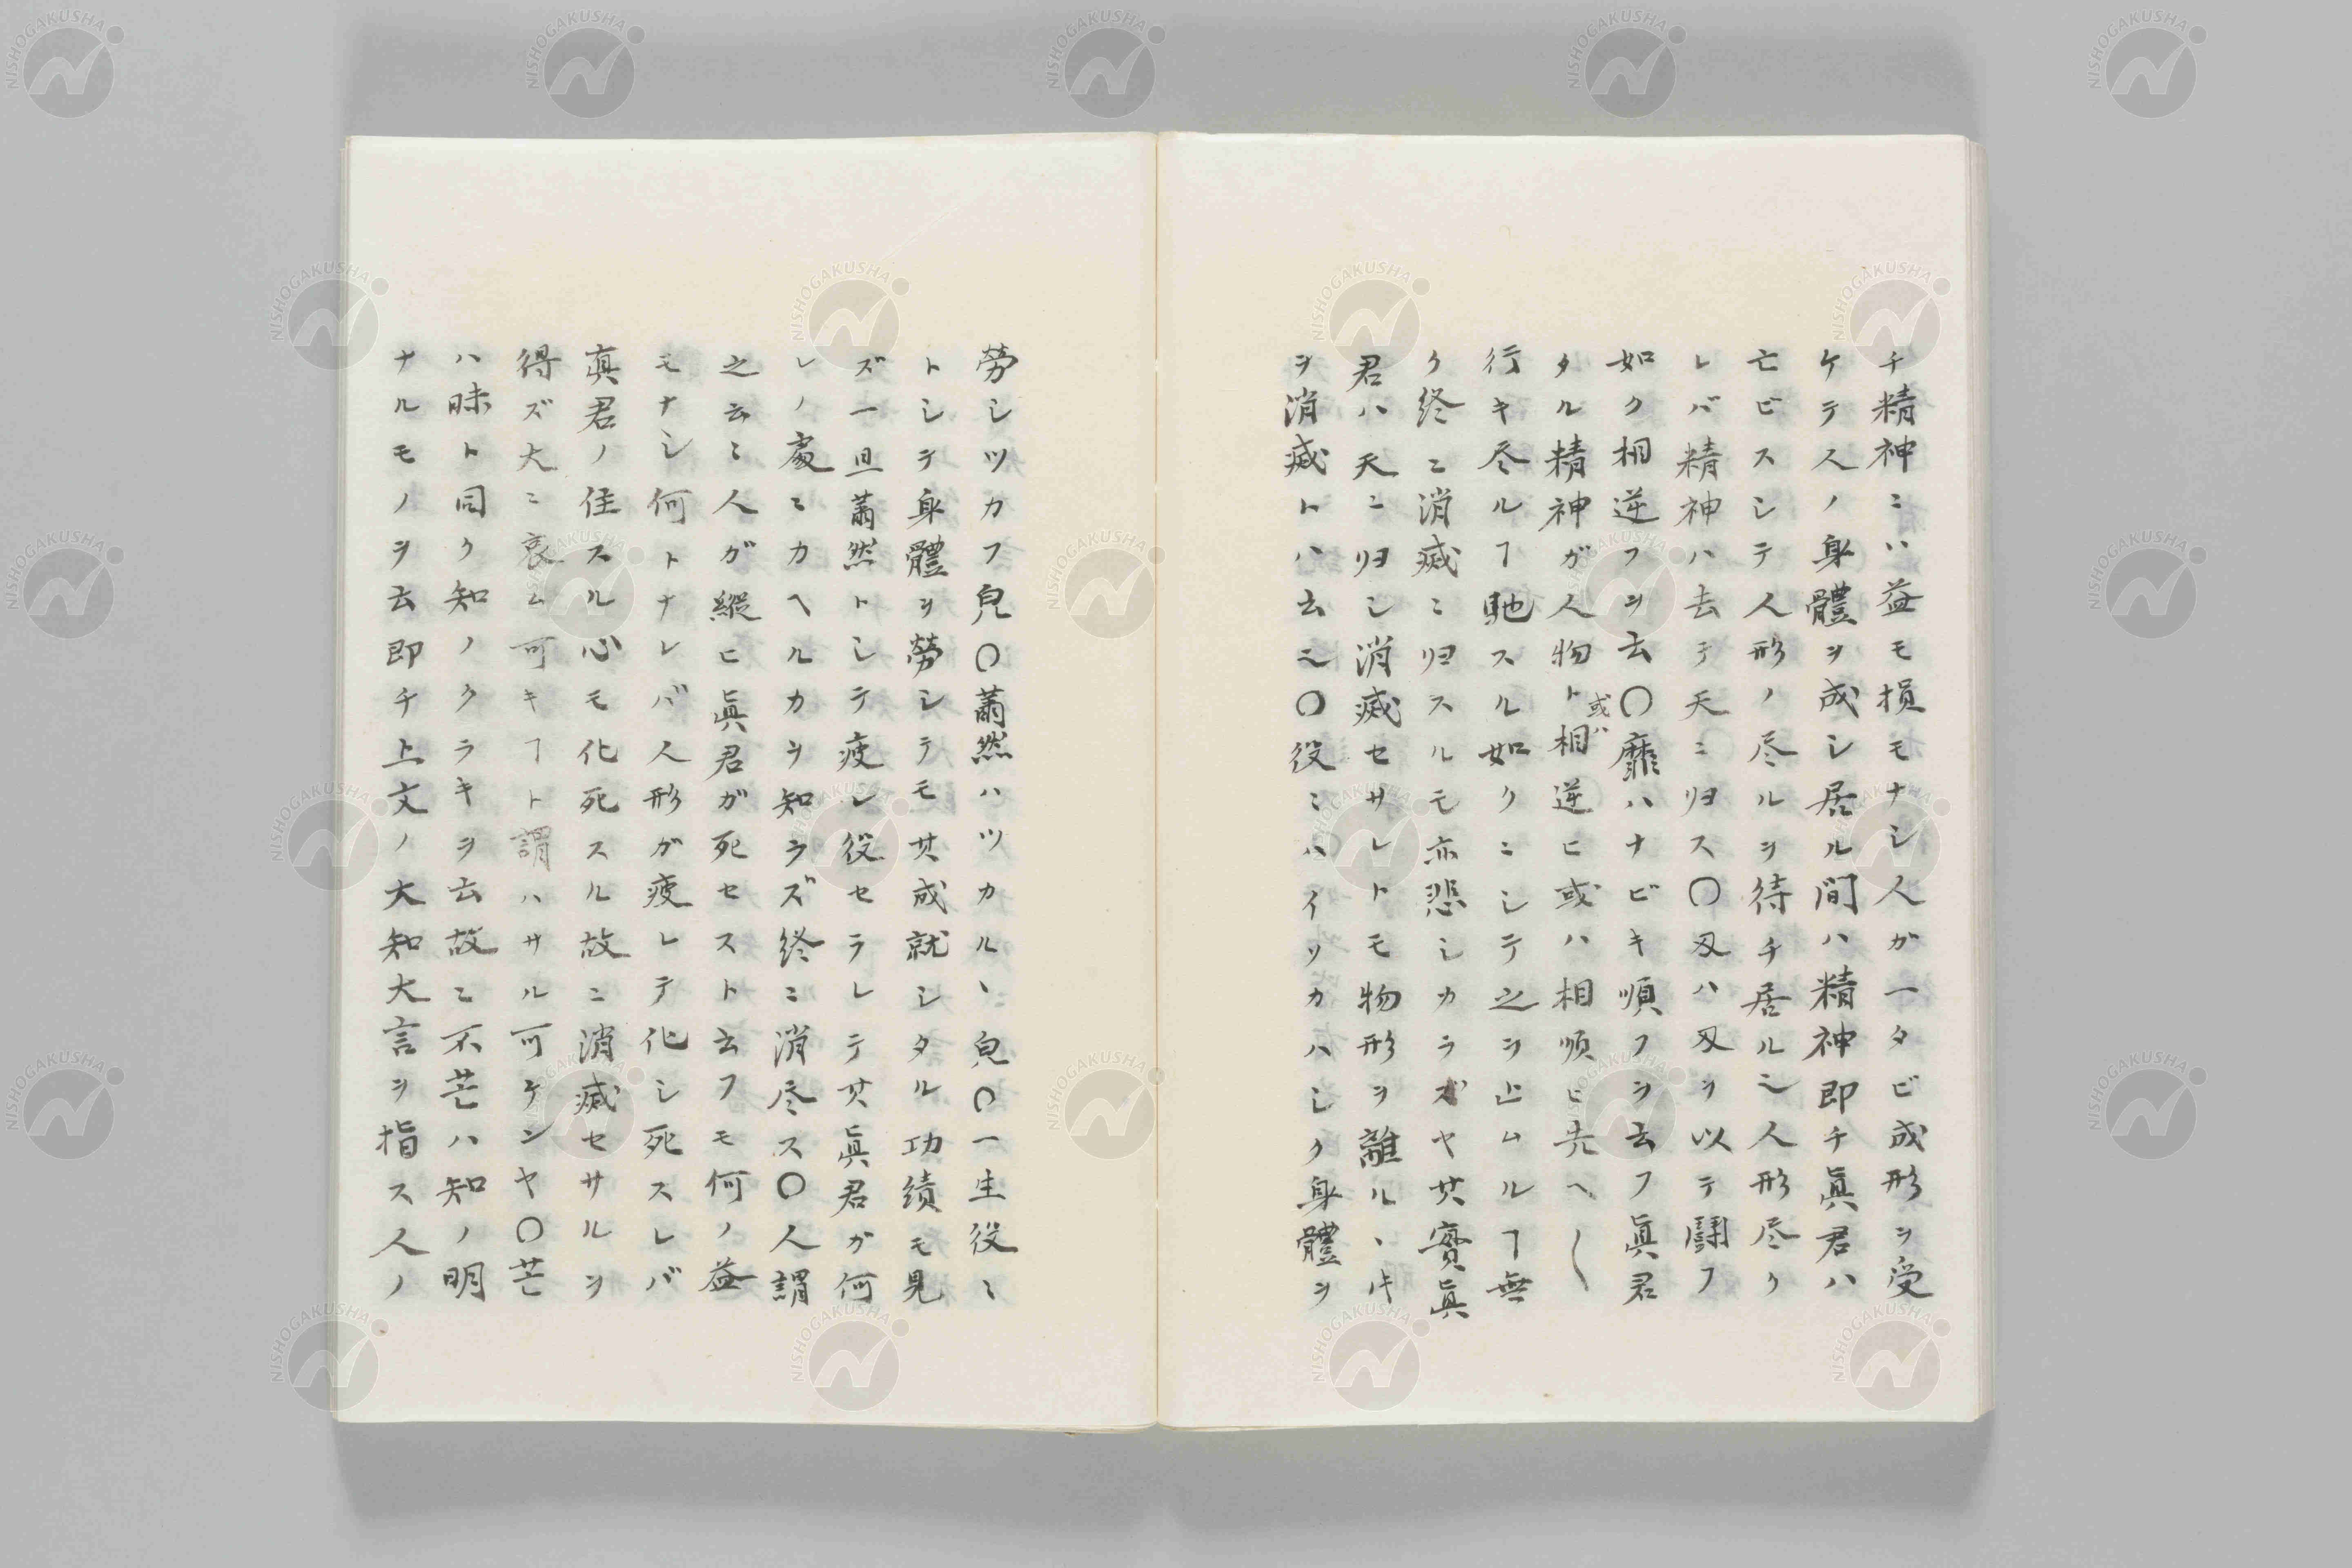 チ精神ニハ益モ損モナシ人ガ一タビ成形ヲ受
ケテ人ノ身體ヲ成シ居ル間ハ精神即チ眞君ハ
亡ビスシテ人形ノ尽ルヲ待チ居ル也人形尽ク
レバ精神ハ去テ天ニ归ス〇刄ハ刄ヲ以テ鬪フ
如ク相逆フヲ云〇靡ハナビキ順フヲ云フ眞君
タル精神ガ人物ト或ハ相逆ヒ或ハ相順ヒ先へ〱
行キ尽ルヿ馳スル如クニシテ之ヲ止ムルヿ無
ク終ニ消滅ニ归スルモ亦悲シカラズヤ其實眞
君ハ天ニ归シ消滅セサレトモ物形ヲ離ルヽ𪜈
ヲ消滅トハ云也〇役ミハイソカハシク身體ヲ
勞シツカフ皃〇薾然ハツカルヽ皃〇一生役ミ
トシテ身體ヲ勞シテモ其成就シタル功績モ見
ズ一旦薾然トシテ疲レ役セラレテ其眞君ガ何
レノ處ニカヘルカヲ知ラズ終ニ消尽ス〇人謂
之云ミ人ガ縱ヒ眞君ガ死セスト云フモ何ノ益
モナシ何トナレバ人形ガ疲レテ化シ死スレバ
眞君ノ住スル心モ化死スル故ニ消滅セサルヲ
得ズ大ニ哀ム可キヿト謂ハサル可ケンヤ〇芒
ハ昧ト同ク知ノクラキヲ云故ニ不芒ハ知ノ明
ナルモノヲ云即チ上文ノ大知大言ヲ指ス人ノ
NISHOGAKUSHA